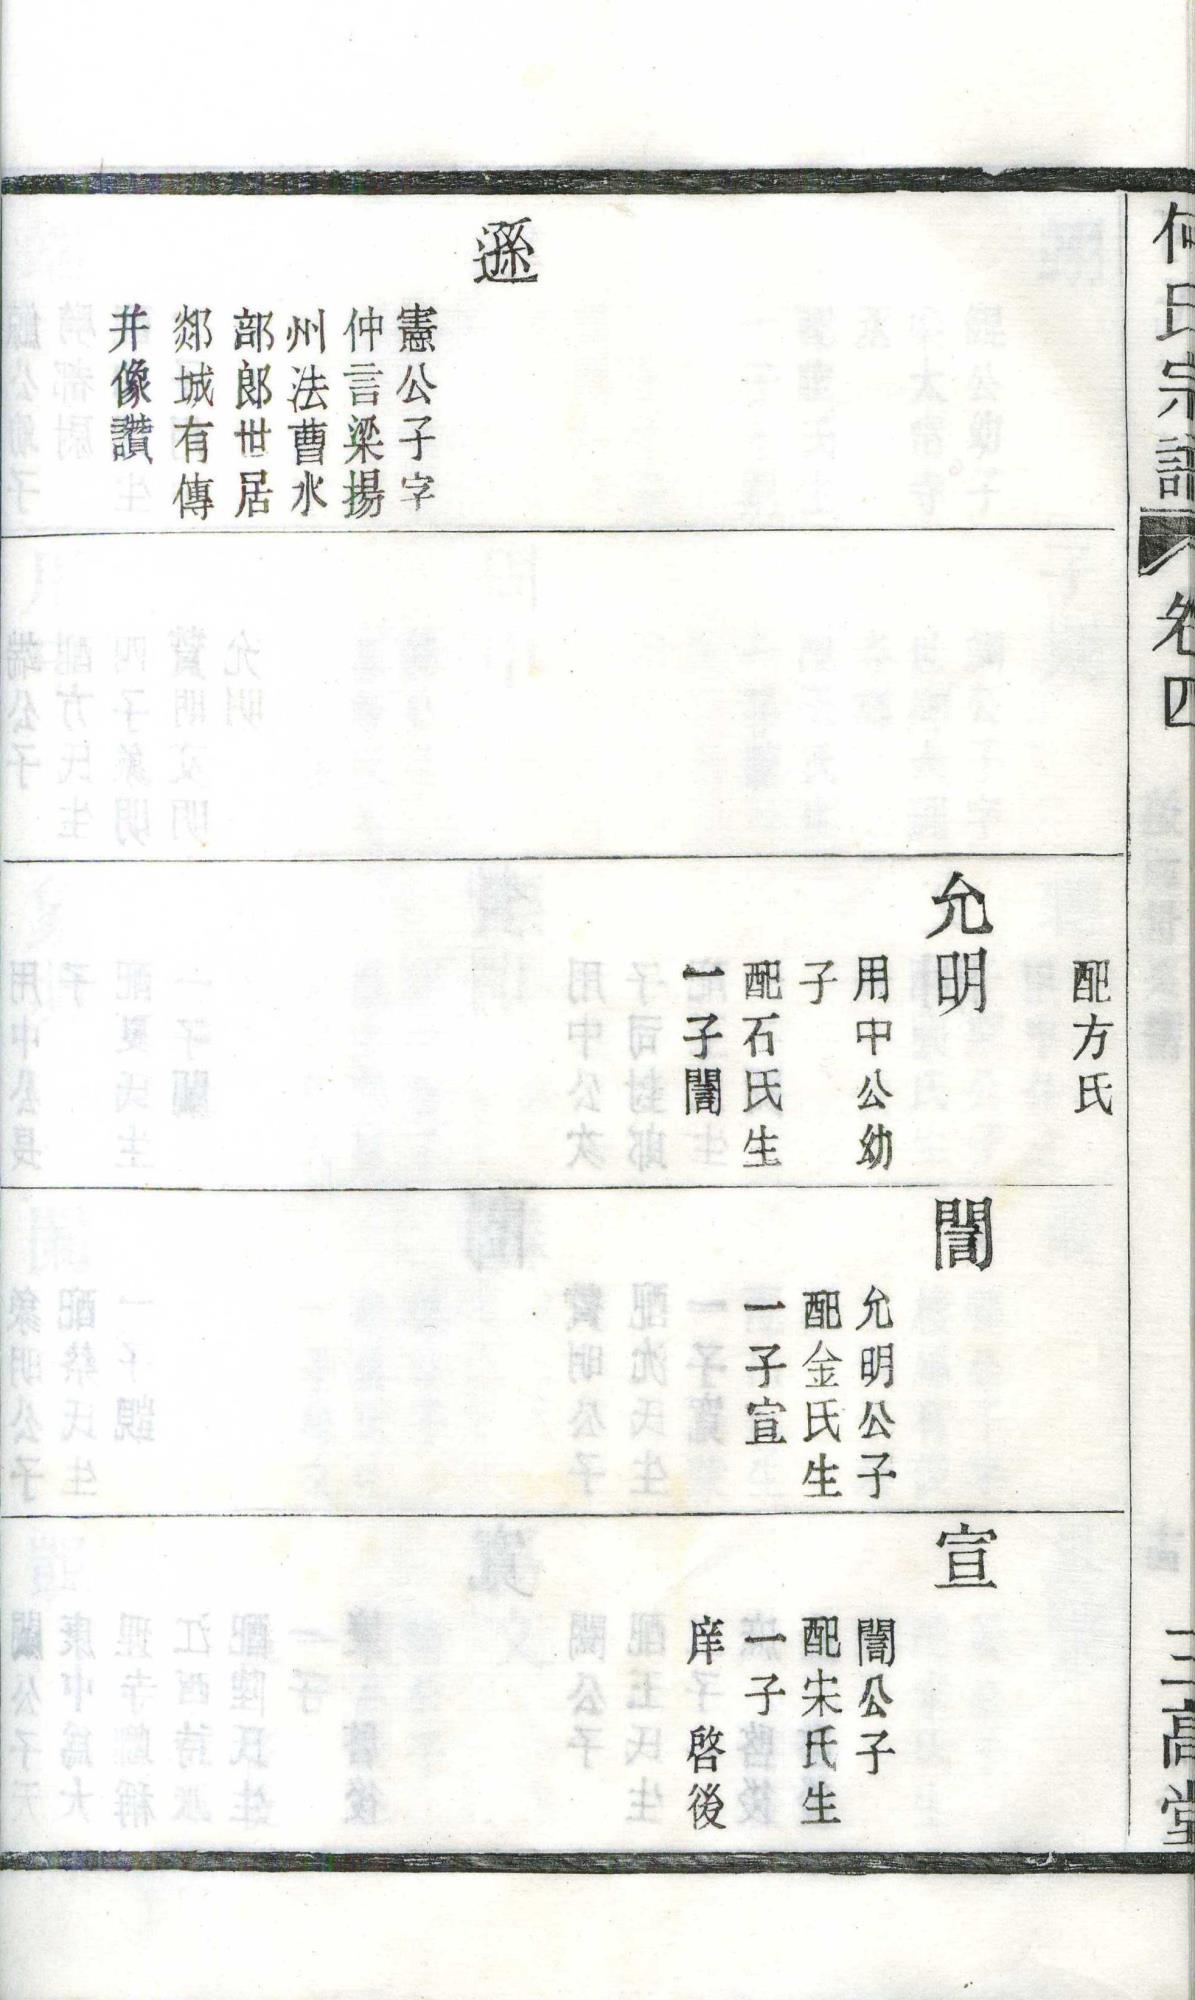 何氏宗譜
卷四
三高堂
遜
憲公子字
仲言梁揚
州法曹水
部郎世居
郯城有傳
并像讚
配方氏
允明
用中公幼
子
配石氏生
一子誾
誾
允明公子
配金氏生
一子宣
宣
誾公子
配宋氏生
一子
庠 啓後